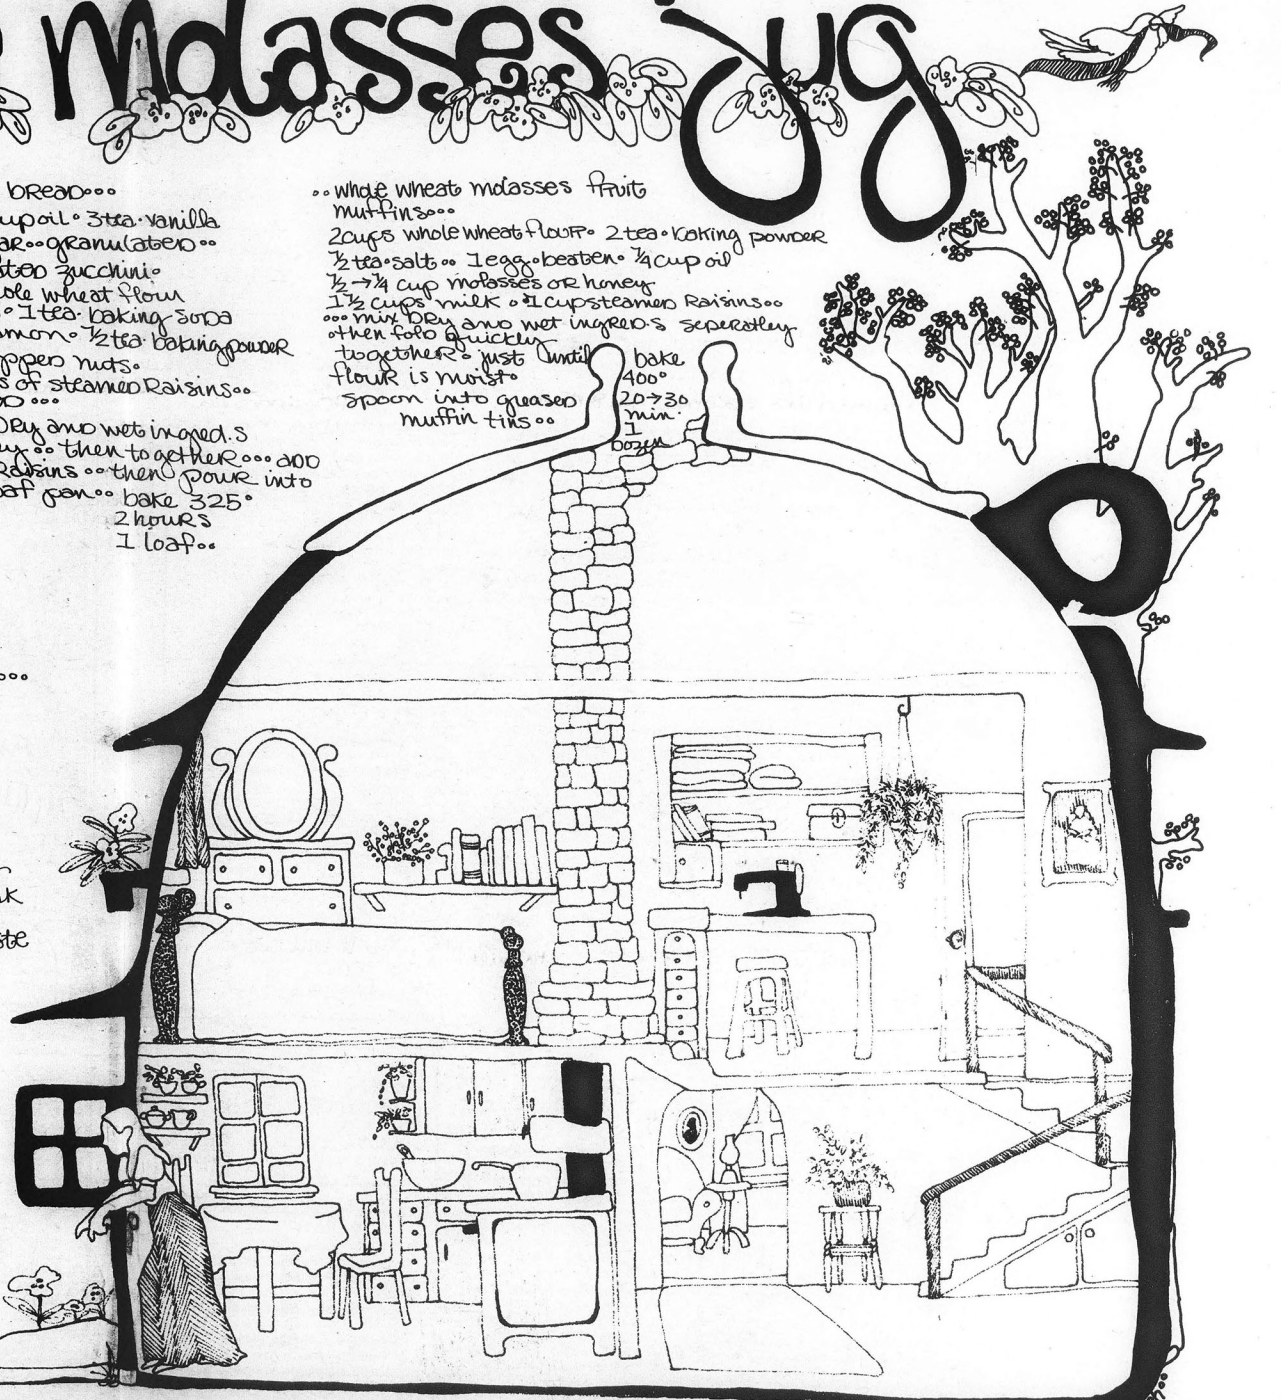 molasses jug
bread...
up oil • 3 tea • vanilla
ar •• granulated ••
ted zucchini •
ole wheat flour
• 1 tea • baking soda
mon • ½ tea • baking powder
pped nuts •
s of steamed raisins ••
dry and wet ingred.s
y •• then together ••• add
raisins •• then pour into
oaf pan •• bake 325°
2 hours
1 loaf ••
•• whole wheat molasses fruit
muffins •••
2 cups whole wheat flour • 2 tea • baking powder
½ tea • salt •• 1 egg • beaten • ¼ cup oil
½ → ¼ cup molasses or honey
1 ½ cups milk • 1 cup steamed raisins ••
••• mix dry and wet ingred.s seperatley
• then fold quickly
together • just until
flour is moist •
spoon into greased
muffin tins ••
bake
400°
20 → 30
min.
1
dozen
k
ste